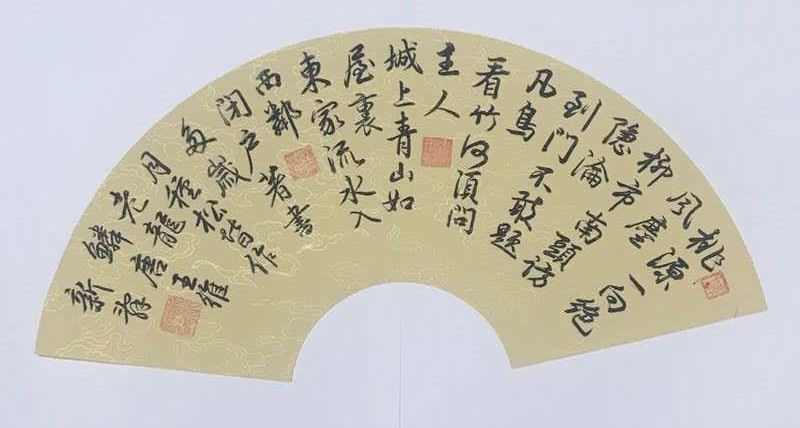 桃源一向绝
风塵
柳市南頭訪
隐淪
到門不敢題
凡鳥
看竹何須問
主人
城上青山如
屋裏
東家流水入
西鄰
闭户著書
多歲
月種松皆作
老龍
鱗唐王維
新